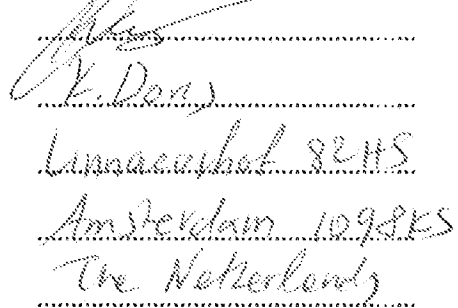 K. Dons
Linnaeushof 82HS
Amsterdam 1098KS
The Netherlands